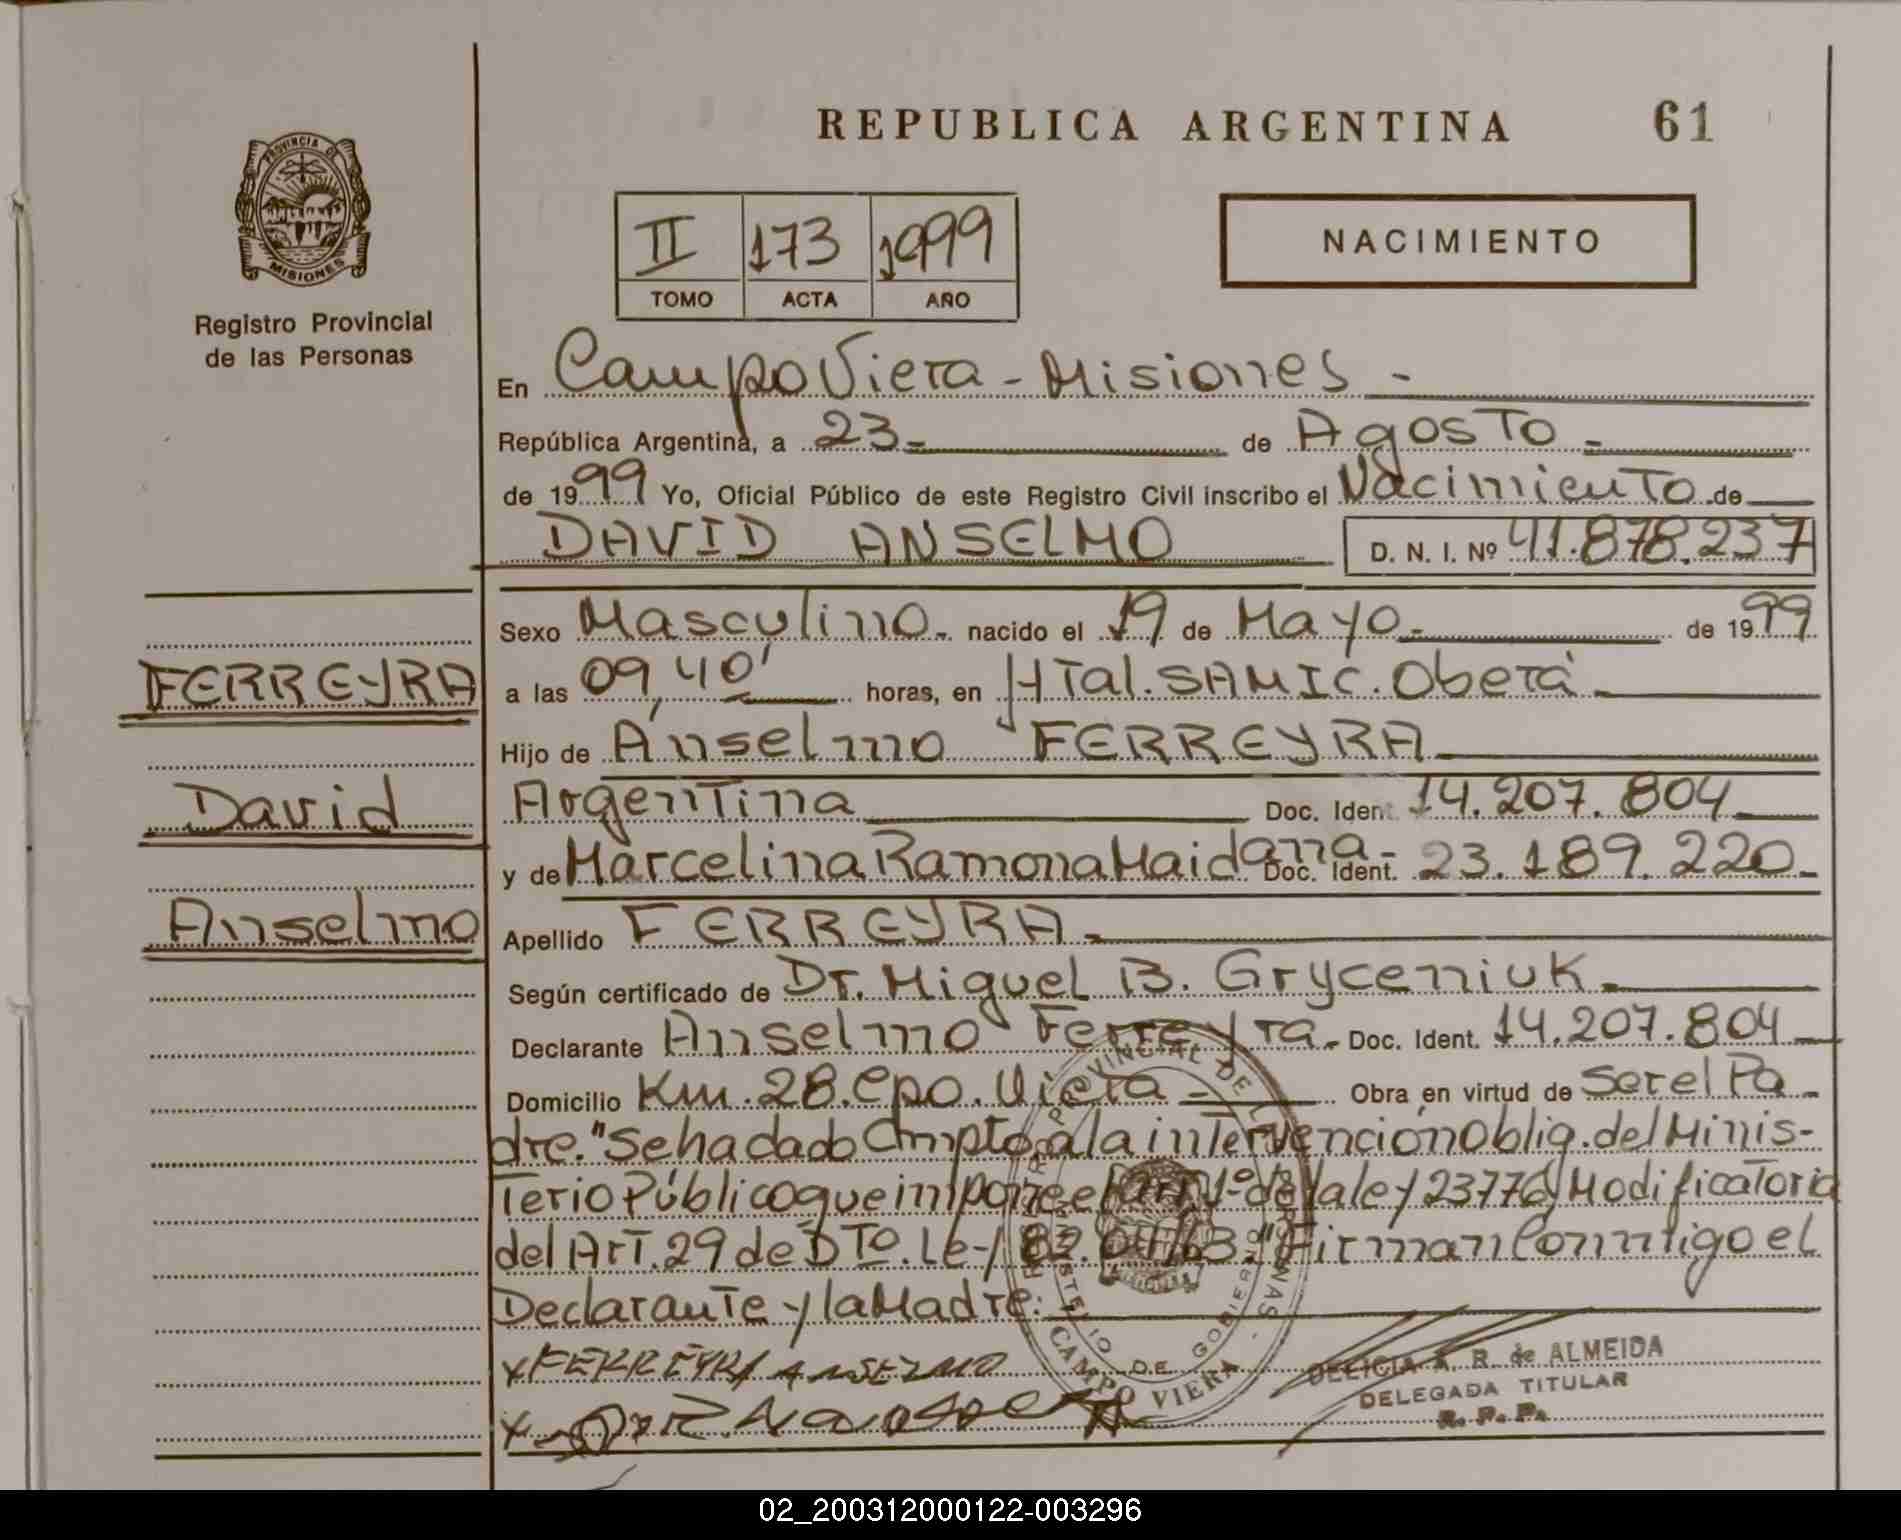 REPUBLICA ARGENTINA 61
PROVINCIA DE
MISIONES
Registro Provincial
de las Personas
II 173 1999
TOMO ACTA AÑO
NACIMIENTO
En Campo Viera - Misiones -
República Argentina, a 23- de Agosto -
de 1999 Yo, Oficial Público de este Registro Civil inscribo el Nacimiento de
DAVID ANSELMO D. N. I. Nº 41.878.237
Sexo Masculino - nacido el 19 de Mayo - de 1999
FERREYRA
a las 09,40' horas, en HTal. SAMIC. Oberá -
Hijo de Anselmo FERREYRA
David
Argentina Doc. Ident. 14.207.804
y de Marcelina Ramona Maidana - Doc. Ident. 23.189.220-
Anselmo
Apellido FERREYRA -
Según certificado de Dr. Miguel B. Gryceniuk -
Declarante Anselmo Ferreyra - Doc. Ident. 14.207.804
Domicilio Km. 28. Cpo. Viera - Obra en virtud de Ser el Pa-
dre. "Se ha dado Cmpto. a la intervención Oblig. del Minis-
Terio Público que impone el Art. 1º de la ley 23776 Modificatoria
del Art. 29 de DTo. Ley 8204/63." Firman Conmigo el
Declarante y la Madre:
x FERREYRA ANSELMO
x
REGISTRO PROVINCIAL DE LAS PERSONAS
MINISTERIO DE GOBIERNO
CAMPO VIERA
DELICIA A. R. de ALMEIDA
DELEGADA TITULAR
R. P. P.
02_200312000122-003296